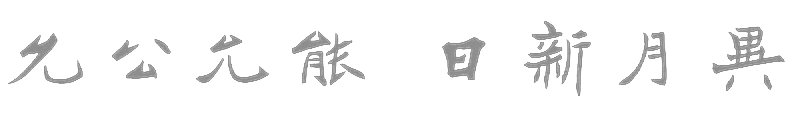 允公允能 日新月異